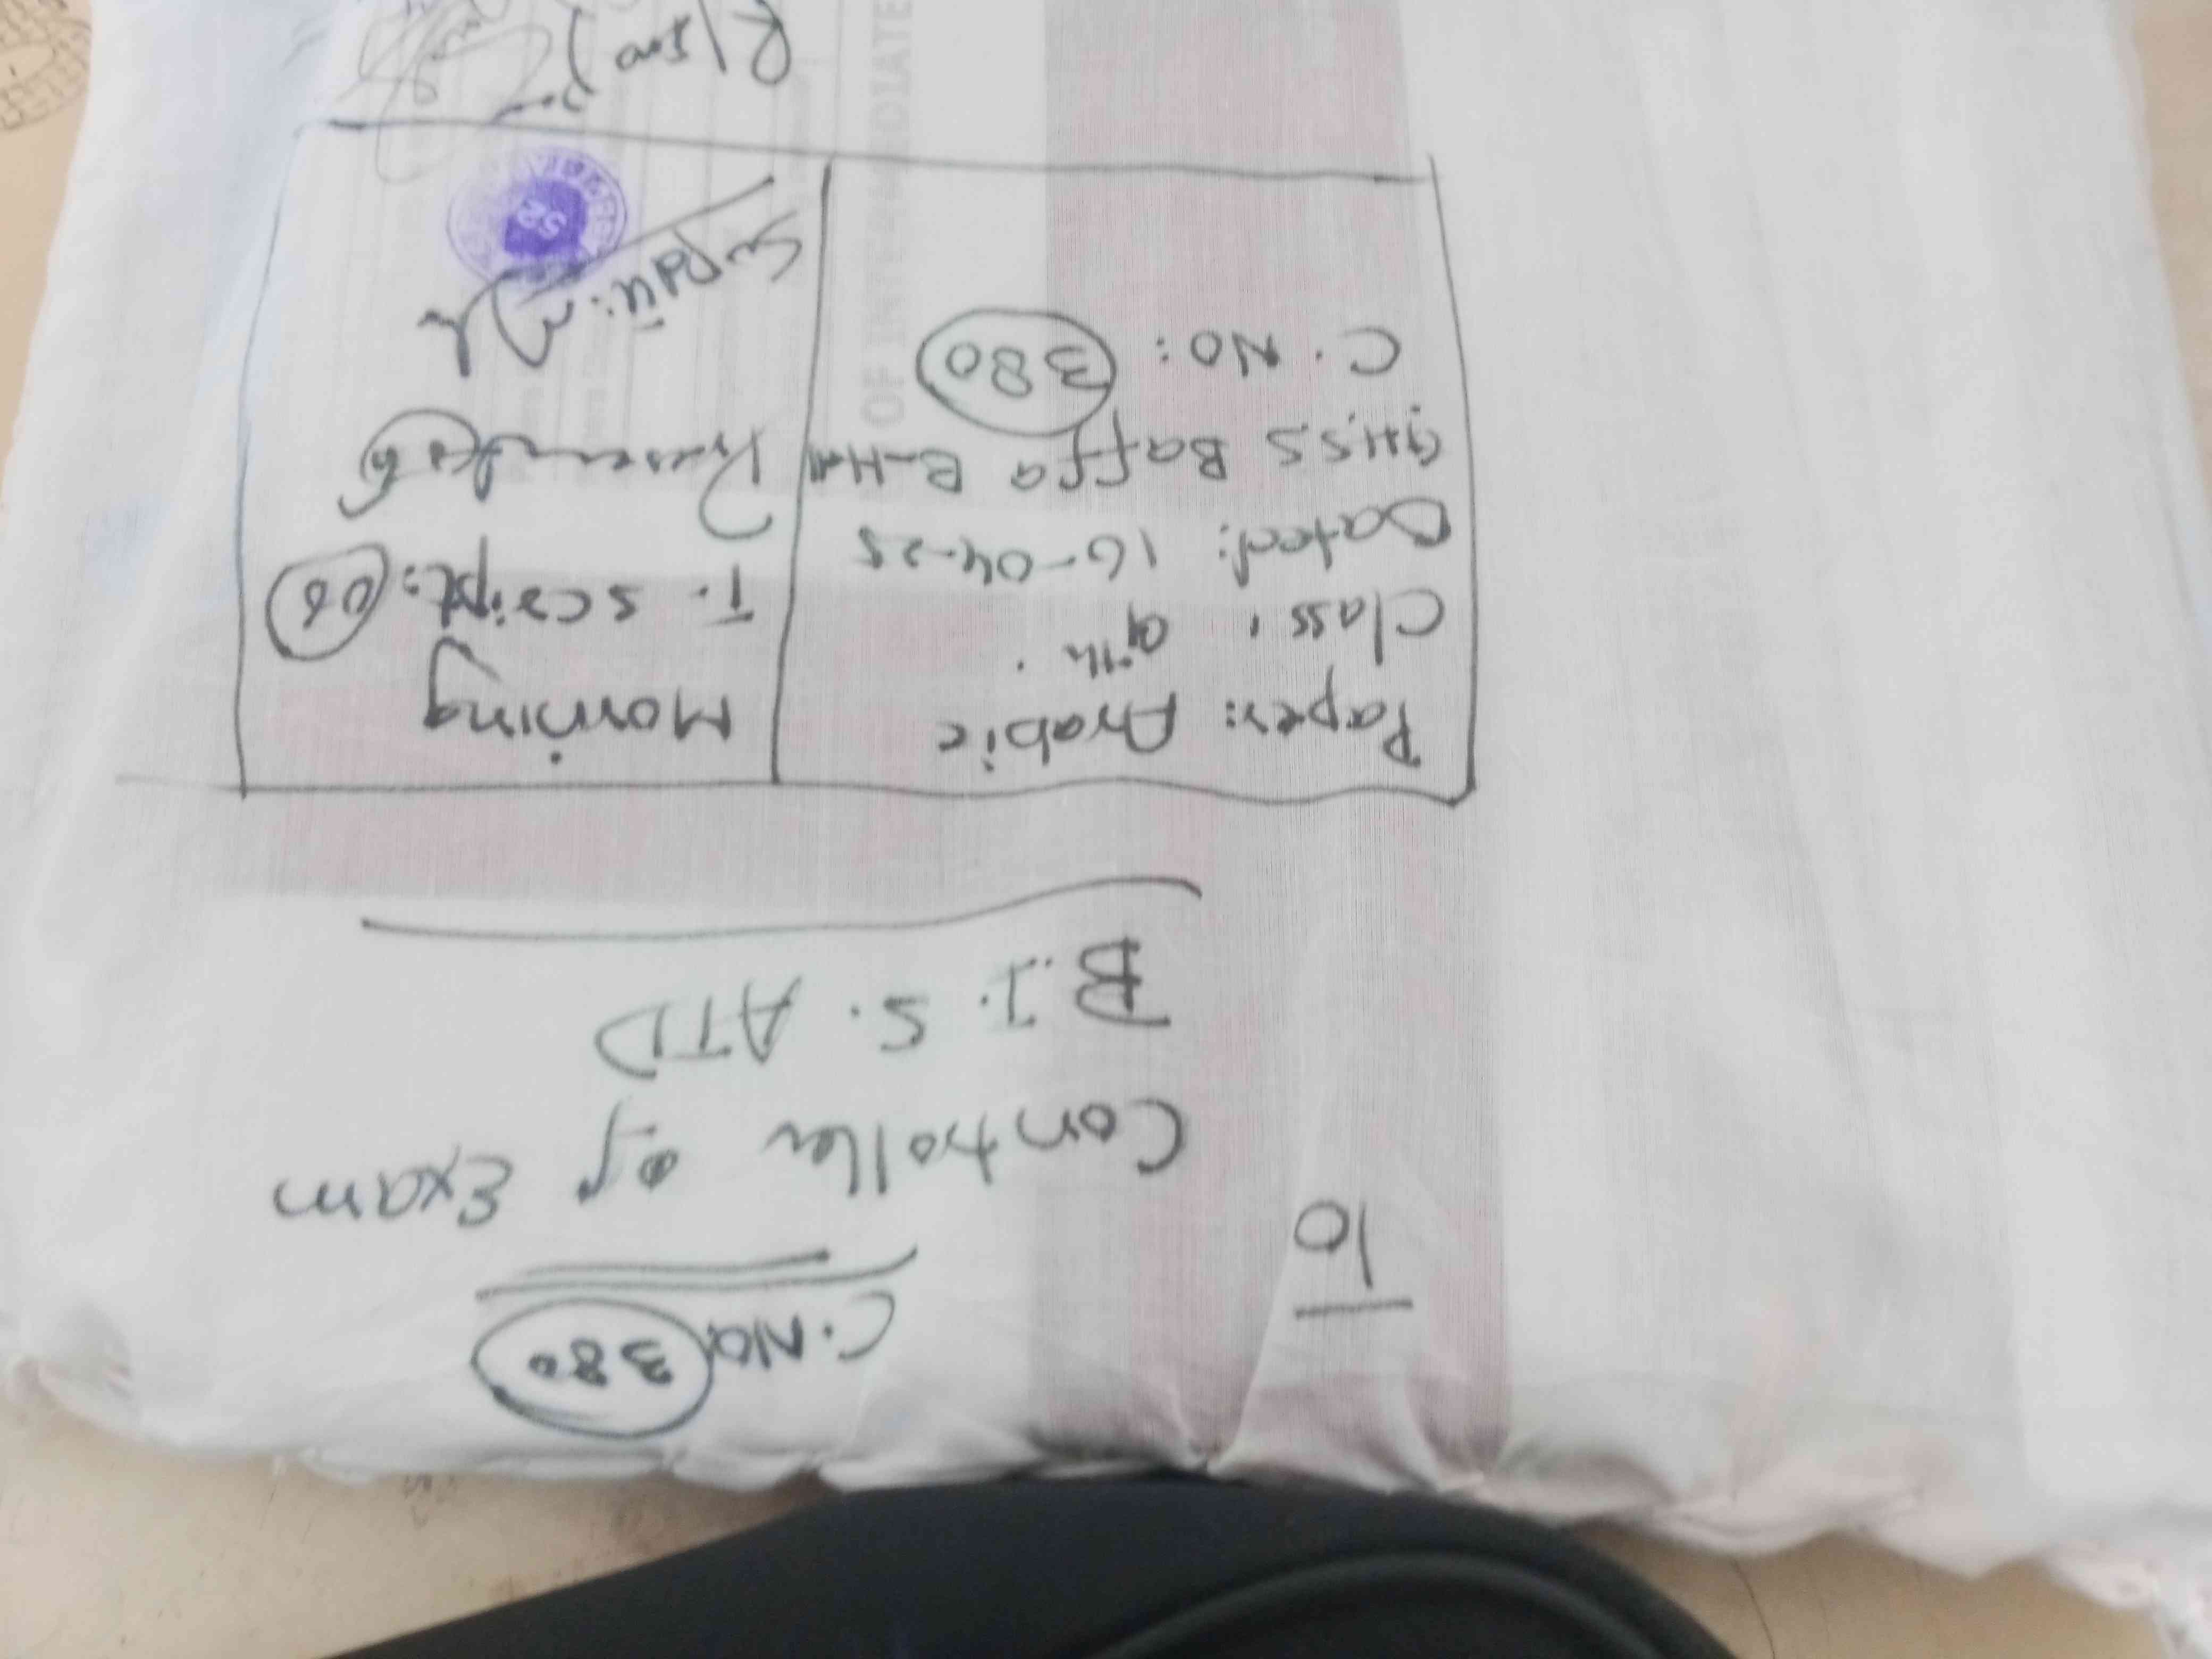 C. No 380
10
Controller of Exam
B.I.S. ATD
Paper: Arabic
Class: 9th.
Dated: 16-04-25
GHSS Baffa B-Hall
C. No: 380
Morning
T. script: 06
Present: 06
52
OF INTERMEDIATE